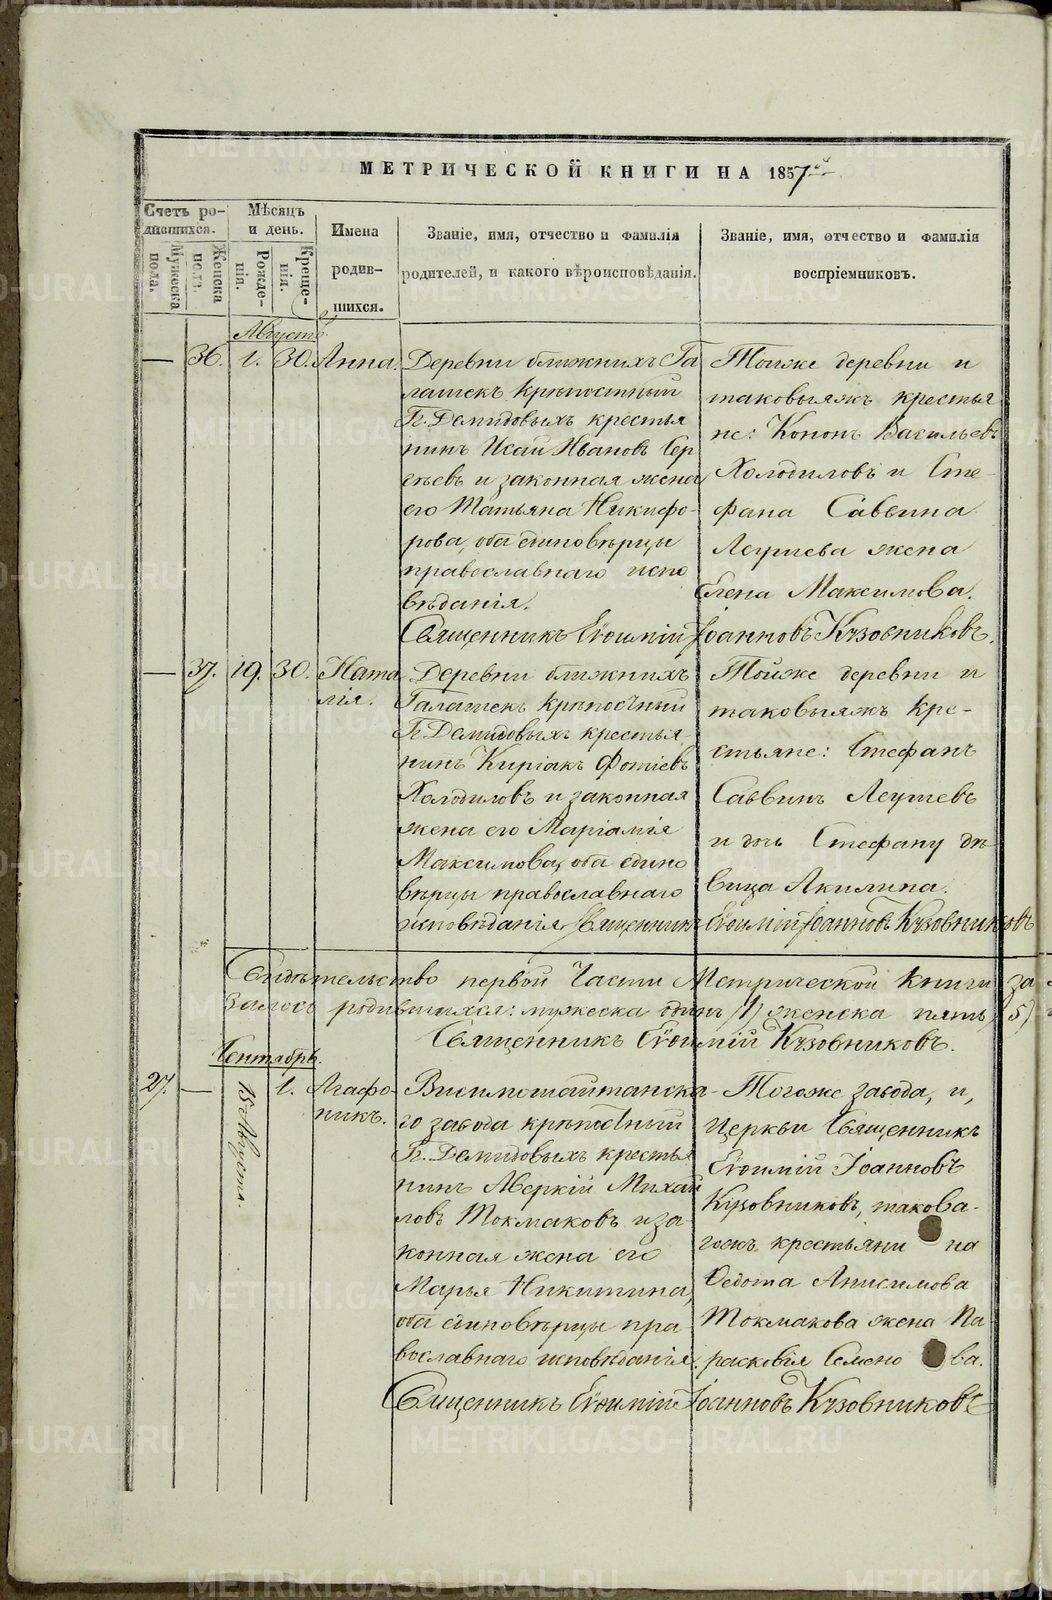 МЕТРИЧЕСКОЙ КНИГИ НА 1857й
Счетъ родившихся.
Мужеска пола.
Женска пола.
Мѣсяцъ и день.
Рожденія.
Крещенія.
Имена родившихся.
Званіе, имя, отчество и фамилія
родителей, и какого вѣроисповѣданія.
Званіе, имя, отчество и фамилія
воспріемниковъ.
Августъ.
— 36. 1. 30. Анна.
Деревни ближнихъ Га
лашекъ крѣпостный
Гг. Демидовыхъ крестья
нинъ Исаи Ивановъ Сер
гѣевъ и законная жена
его Татьяна Никифо-
рова, оба единовѣрцы
православнаго испо
вѣданія.
Тойже деревни и
таковыяжъ крестья
не: Кононъ Васильевъ
Холодиловъ и Сте-
фана Саввина
Легушева жена
Елена Максимова.
Священникъ Евѳимій Іоанновъ Кузовниковъ.
— 37. 19. 30. Ната
лія.
Деревни ближнихъ
Галашекъ крѣпостный
Гг. Демидовыхъ крестья
нинъ Киріакъ Фотіевъ
Холодиловъ и законная
жена его Маріамія
Максимова, оба едино
вѣрцы православнаго
исповѣданія
Тойже деревни и
таковыяжъ кре-
стьяне: Стефанъ
Саввинъ Легушевъ
и дочь Стефану дѣ
вица Акилина.
Священникъ Евѳимій Іоанновъ Кузовниковъ
Свидѣтельство первой Части Метрической книги за
родившихся: мужеска одинъ /1/ женска пять /5/
Священникъ Евѳимій Кузовниковъ.
Сентябрь.
27. — 15 Августа. 1. Агафо-
никъ.
Висимошайтанска-
го завода крѣпостный
Гг. Демидовыхъ крестья
нинъ Аверкій Михай
ловъ Токмаковъ и за-
конная жена его
Марья Никитина,
оба единовѣрцы пра
вославнаго исповѣданія.
Тогоже завода, и,
Церкви Священникъ
Евѳимій Іоанновъ
Кузовниковъ, такова-
гожъ крестьяни на
Ѳедота Анисимова
Токмакова жена Па
расковія Семено ва.
Священникъ Евѳимій Іоанновъ Кузовниковъ
METRIKI.GASO-URAL.RU